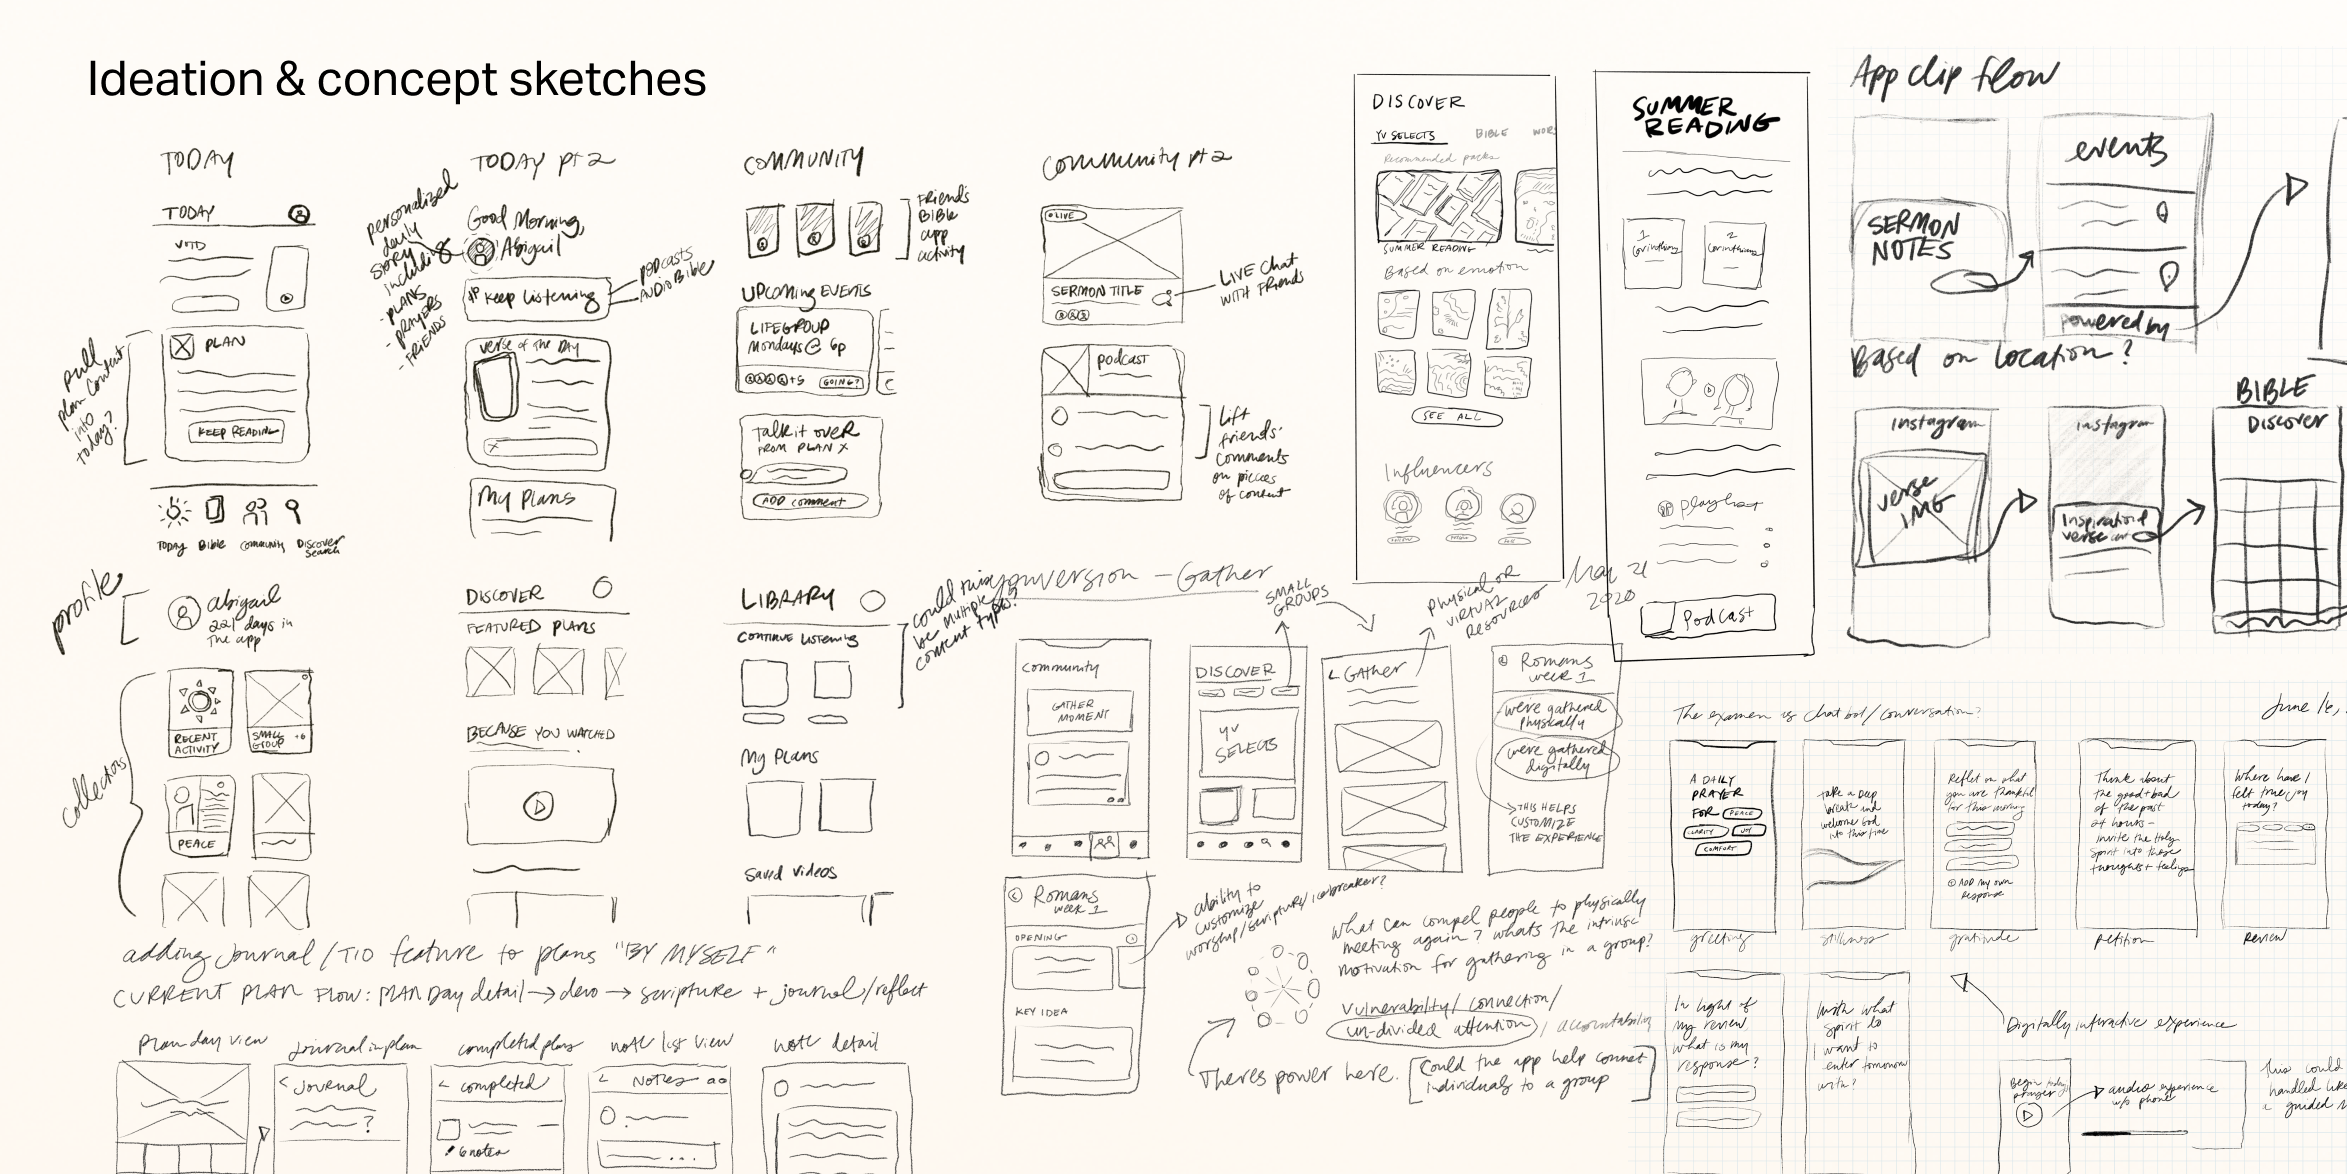 Ideation & concept sketches
TODAY
TODAY
VOTD
PLAN
KEEP READING
Pull
plan content
into
today?
Today
Bible
Community
Discover
Search
TODAY pt 2
personalized
daily
story
including
- PLANS
- PRAYERS
- FRIENDS
Good Morning,
Abigail
Keep listening
PODCASTS
AUDIO BIBLE
verse of the DAY
My Plans
COMMUNITY
FRIENDS
BIBLE
app
activity
UPCOMING EVENTS
LIFEGROUP
Mondays @ 6p
+5
GOING?
Talk it over
FROM PLAN X
ADD comment
Community pt 2
LIVE
SERMON TITLE
LIVE chat
WITH FRIENDS
podcast
Lift
friends'
comments
on pieces
of content
DISCOVER
YV SELECTS
BIBLE
WOR
Recommended packs
SUMMER READING
Based on emotion
SEE ALL
Influencers
SUMMER
READING
1
Corinthians
2
Corinthians
playlist
Podcast
App clip flow
SERMON
NOTES
events
powered by
Based on location?
instagram
verse
IMG
instagram
Inspirational
verse
BIBLE
Discover
profile
abigail
221 days in
the app
collectors
RECENT
ACTIVITY
SMALL
GROUP
+6
PEACE
DISCOVER
FEATURED PLANS
BECAUSE YOU WATCHED
LIBRARY
CONTINUE LISTENING
could
be multiple
content types?
My Plans
Saved videos
youversion - Gather
May 21
2020
SMALL
GROUPS
physical or
virtual
resources
Community
GATHER
MOMENT
DISCOVER
YV
SELECTS
< GATHER
Romans
week 1
we're gathered
physically
we're gathered
digitally
THIS HELPS
CUSTOMIZE
THE EXPERIENCE
Romans
week 1
OPENING
KEY IDEA
ability to
customize
worship/scripture/icebreaker?
What can compel people to physically
meeting again? whats the intrinsic
motivation for gathering in a group?
Vulnerability/connection/
un-divided attention / accountability
Theres power here.
Could the app help connect
individuals to a group
adding journal/TIO feature to plans "BY MYSELF"
CURRENT PLAN FLOW: PLAN Day detail → devo → scripture + journal/reflect
Plan day view
journal in plan
completed plans
note list view
note detail
< journal
?
< completed
6 notes
< Notes
The examen as chat bot/conversation?
June 16,
A DAILY
PRAYER
FOR PEACE
CLARITY
JOY
COMFORT
greeting
Take a deep
breath and
welcome God
into this time
stillness
Reflect on what
you are thankful
for this morning
ADD my own
response
gratitude
Think about
the good + bad
of the past
24 hours -
invite the Holy
Spirit into those
thoughts + feelings
petition
Where have I
felt true joy
today?
REVIEW
In light of
my review
what is my
response?
With what
spirit do
I want to
enter tomorrow
with?
Digitally interactive experience
Begin today's
prayer
audio experience
w/o phone
this could
handled like
a guided